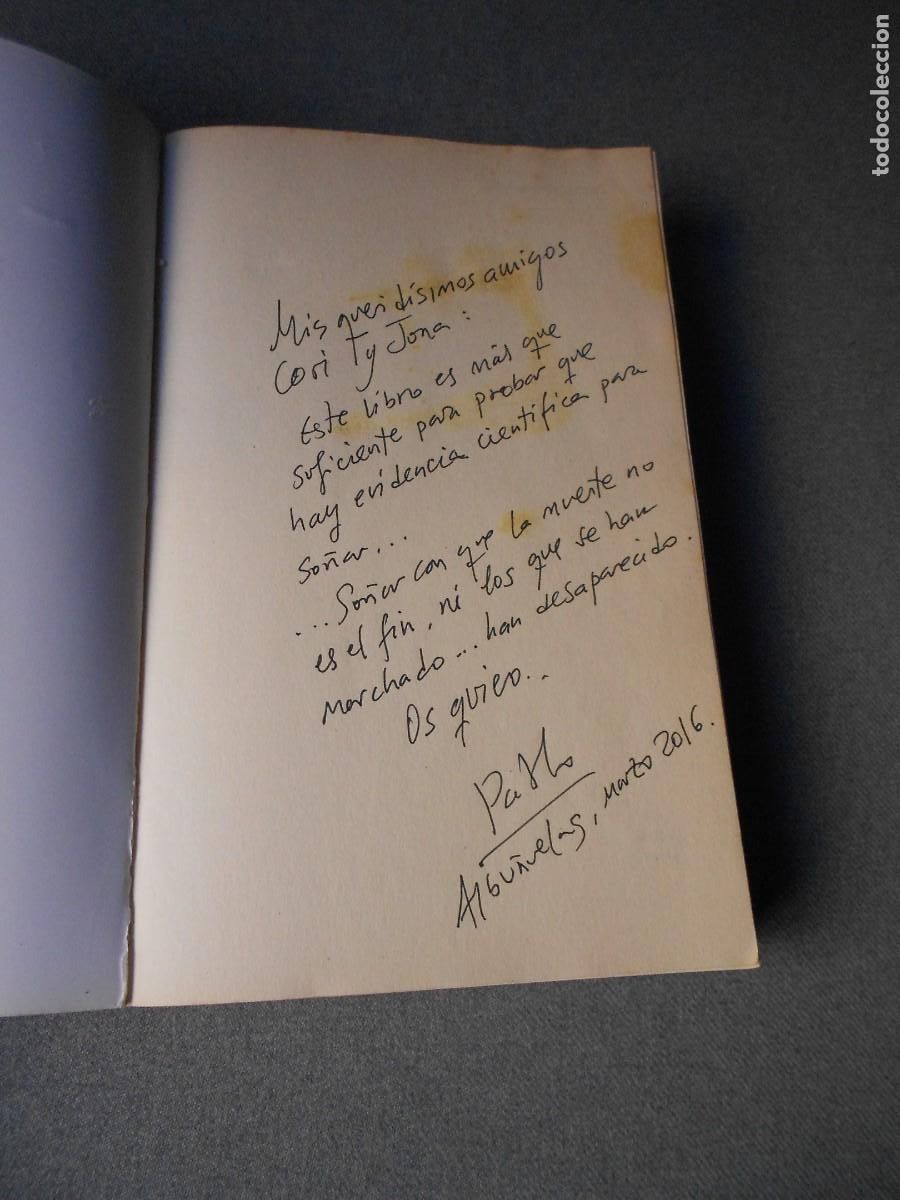 todocoleccion
Mis queridísimos amigos
Cori y Jona:
Este libro es más que
suficiente para probar que
hay evidencia científica para
soñar...
...Soñar con que la muerte no
es el fin, ni los que se han
marchado... han desaparecido.
Os quiero...
Pablo
Albuñuelas, marzo 2016.